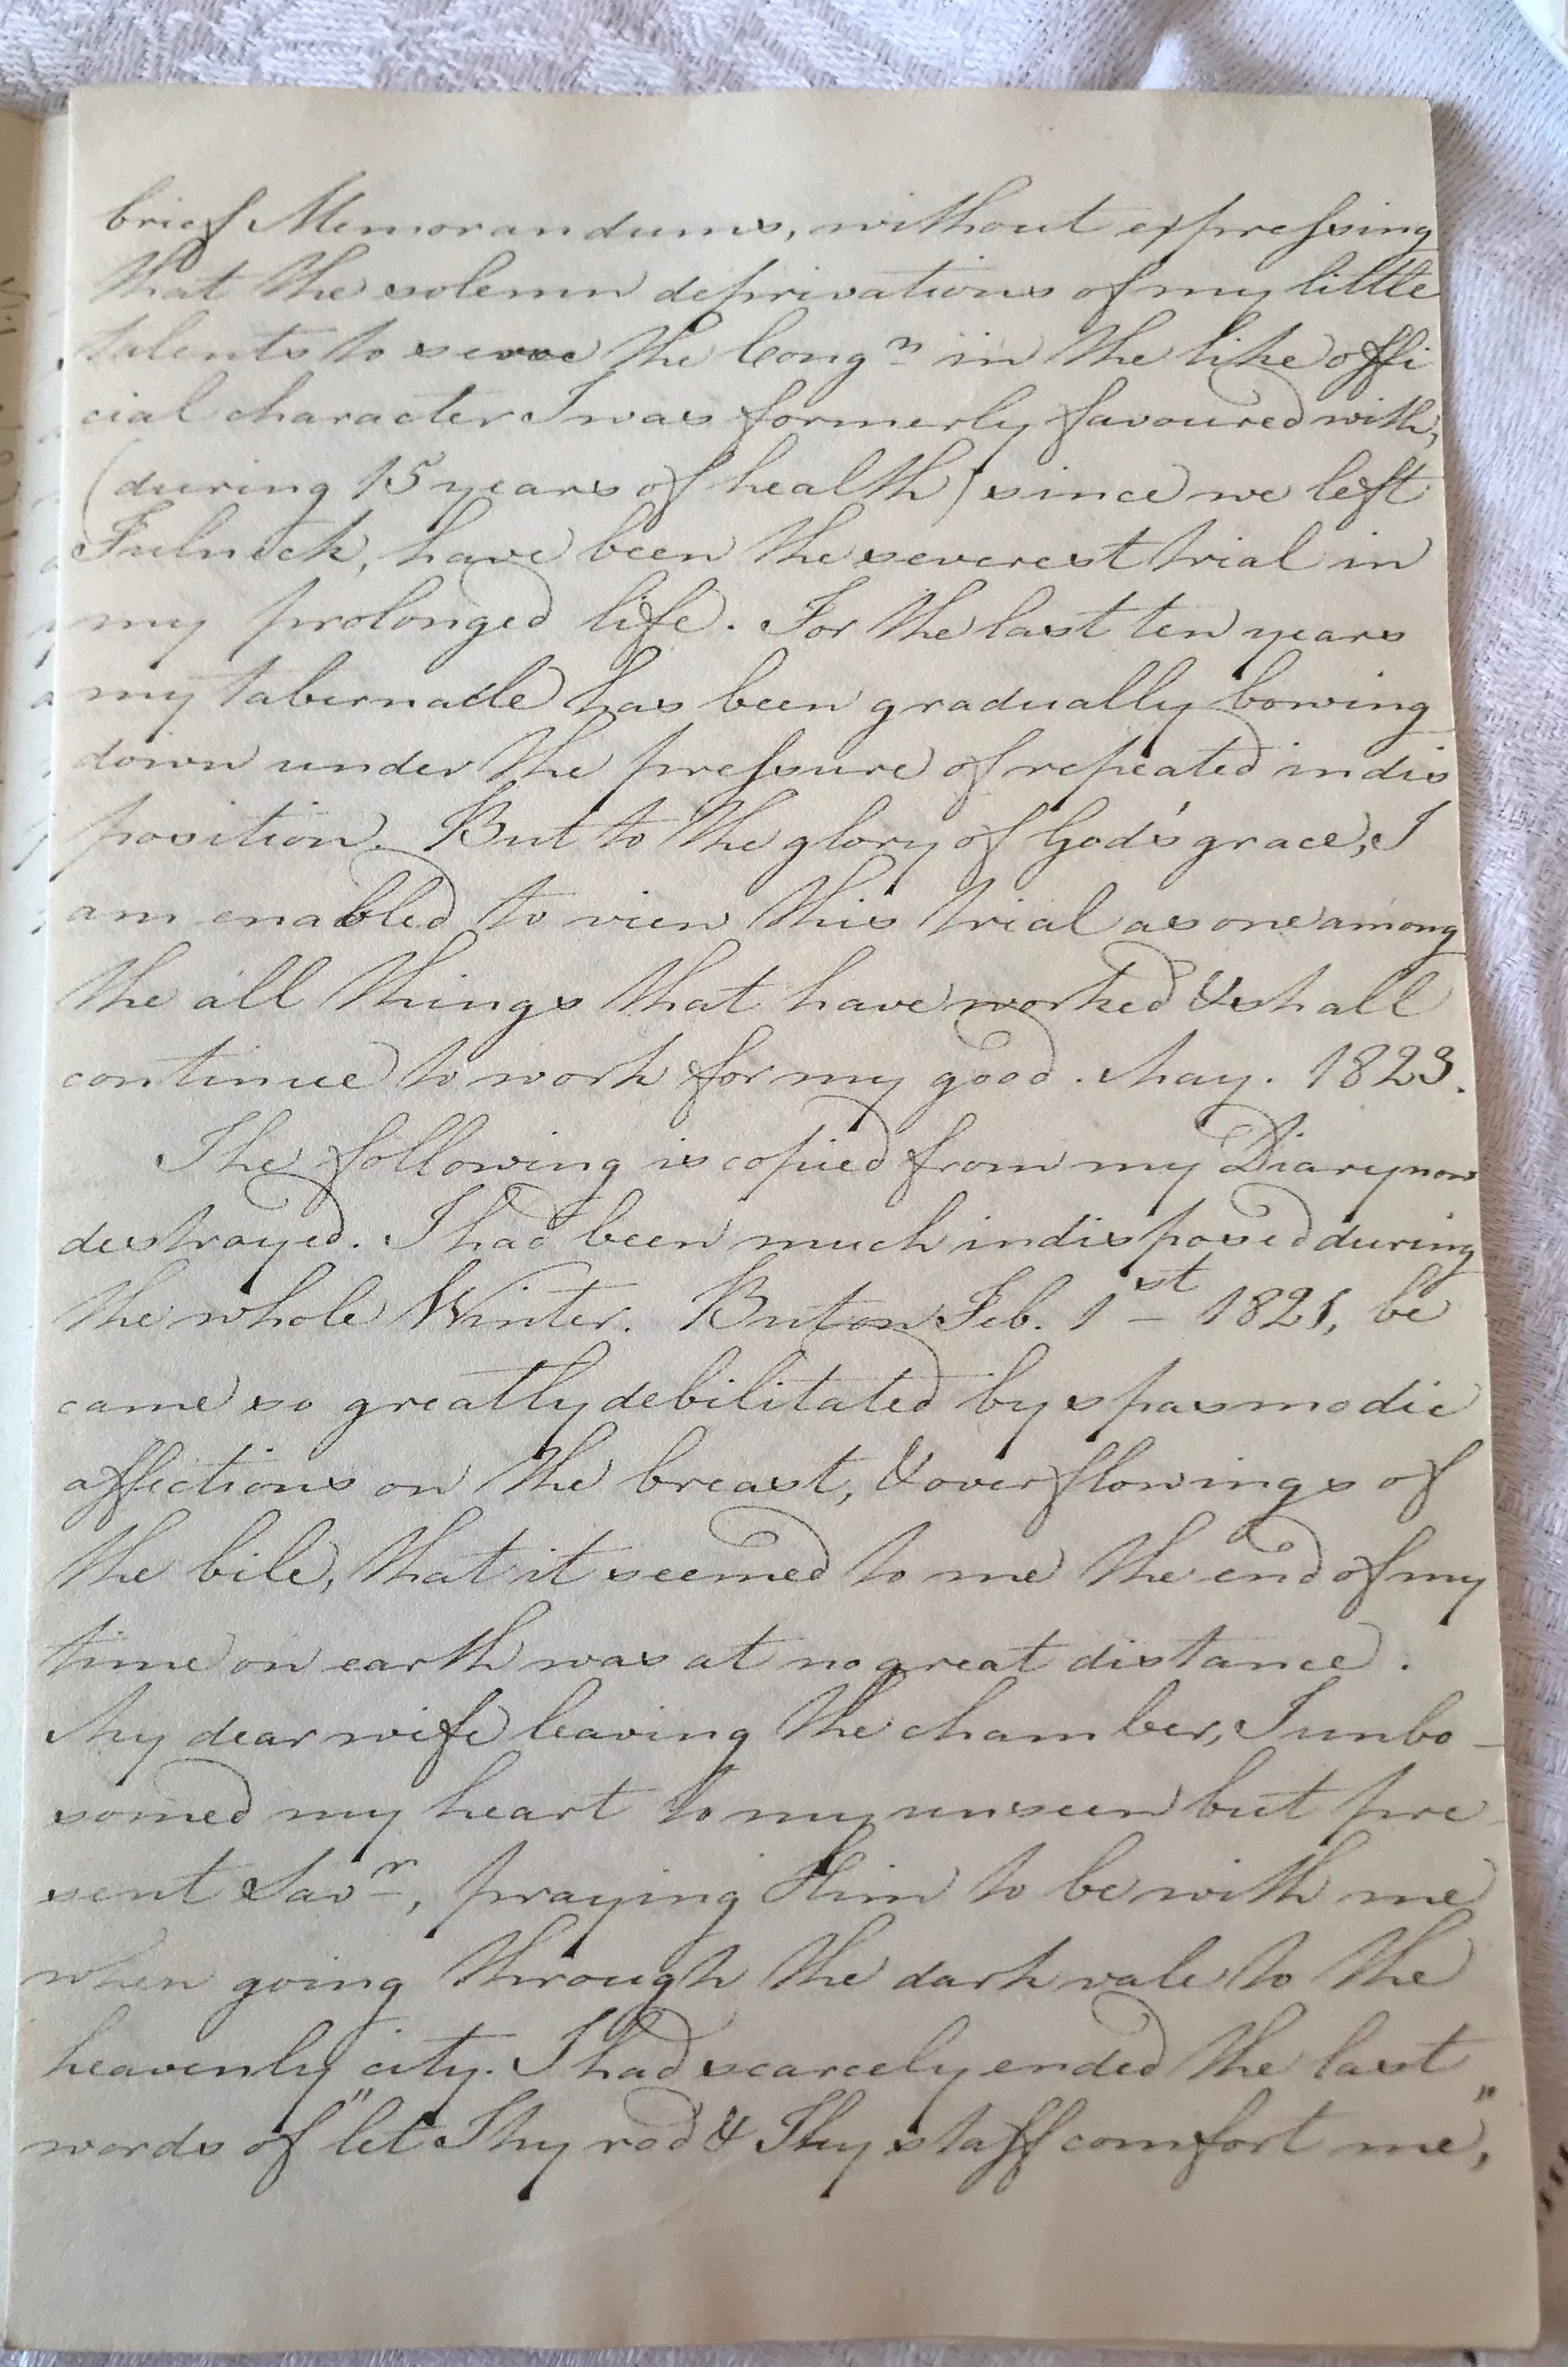 brief Memorandums, without expressing
that the solemn deprivations of my little
talents to serve the Congn in the like offi
cial character I was formerly favoured with,
(during 15 years of health) since we left
Fulneck, have been the severest trial in
my prolonged life. For the last ten years
my tabernacle has been gradually bowing
down under the pressure of repeated indis
position. But to the glory of God's grace, I
am enabled to view this trial as one among
the all things that have worked & shall
continue to work for my good. May. 1823.
The following is copied from my Diary now
destroyed. I had been much indisposed during
the whole Winter. But on Feb. 1st 1821, be
came so greatly debilitated by spasmodic
affections on the breast, & overflowings of
the bile, that it seemed to me the end of my
time on earth was at no great distance.
My dear wife leaving the chamber, I unbo-
somed my heart to my unseen but pre
sent Savr, praying Him to be with me
when going through the dark vale to the
heavenly city. I had scarcely ended the last
words of "let Thy rod & Thy staff comfort me,"